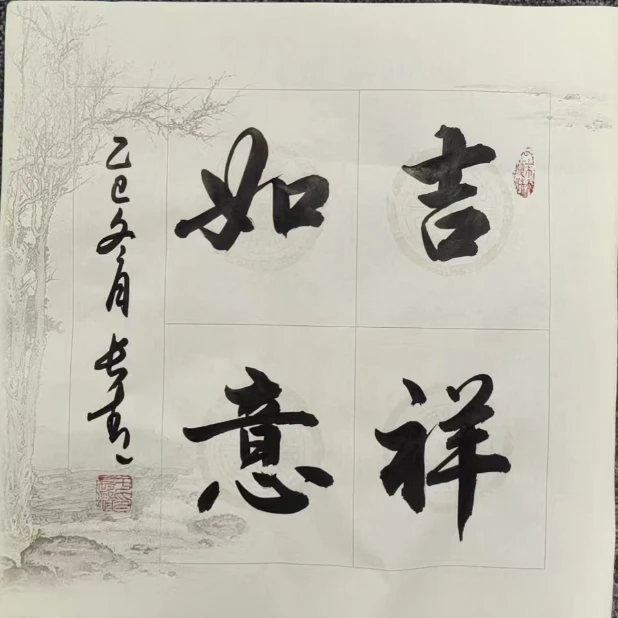 吉祥
如意
乙巳冬月